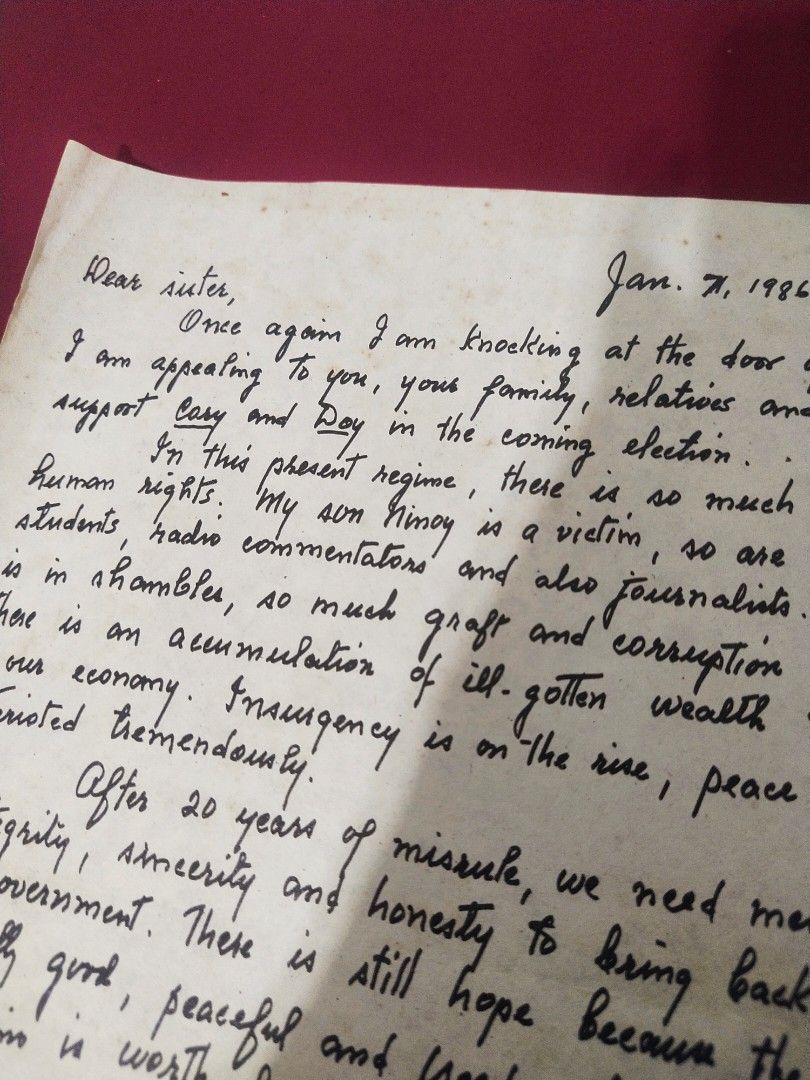 Jan. 7, 1986
Dear sister,
Once again I am knocking at the door
I am appealing to you, your family, relatives and
support Cory and Doy in the coming election.
In this present regime, there is so much
human rights. My son Ninoy is a victim, so are
students, radio commentators and also journalists.
is in shambles, so much graft and corruption
here is an accumulation of ill-gotten wealth
our economy. Insurgency is on the rise, peace
erioted tremendously.
After 20 years of misrule, we need me
egrity, sincerity and honesty to bring back
overnment. There is still hope because the
good, peaceful and
is worth